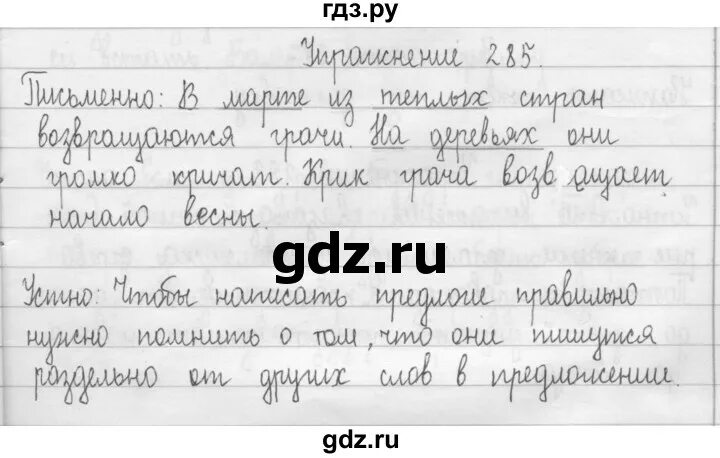 гдз.ру
Упражнение 285
Письменно: В марте из теплых стран
возвращаются грачи. На деревьях они
громко кричат. Крик грача возв ащает
начало весны.
gdz.ru
Устно: Чтобы написать предлоги правильно
нужно помнить о том, что они пишутся
раздельно от других слов в предложении.
gdz.ru